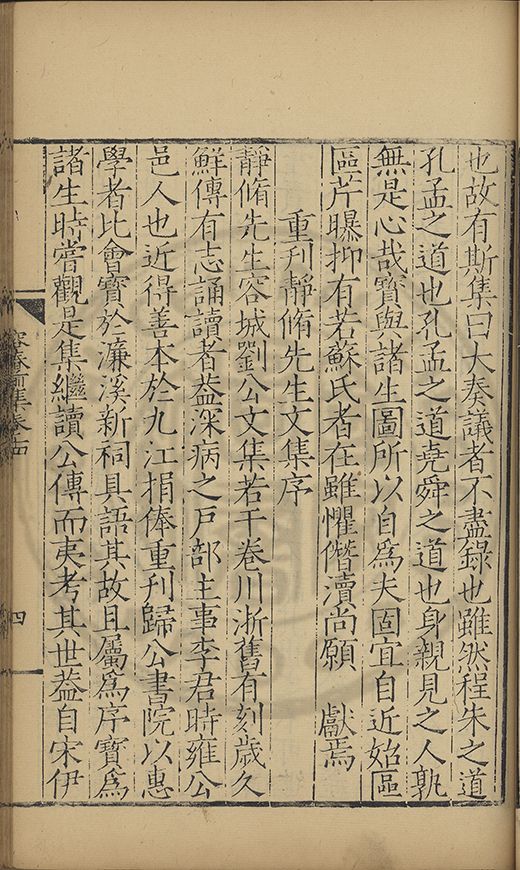 也故有斯集曰大奏議者不盡錄也雖然程朱之道
孔孟之道也孔孟之道堯舜之道也身親見之人孰
無是心哉寳與諸生圖所以自爲夫固宜自近始區
區芹曝抑有若蘇氏者在雖懼僭瀆尚願　獻焉
重刊靜脩先生文集序
靜脩先生容城劉公文集若干卷川浙舊有刻歲久
鮮傳有志誦讀者葢深病之戸部主事李君時雍公
邑人也近得善本於九江捐俸重刊歸公書院以惠
學者比會寳於濂溪新祠具語其故且屬爲序寳爲
諸生時嘗觀是集繼讀公傳而夷考其世葢自宋伊
容春前集卷十四
四